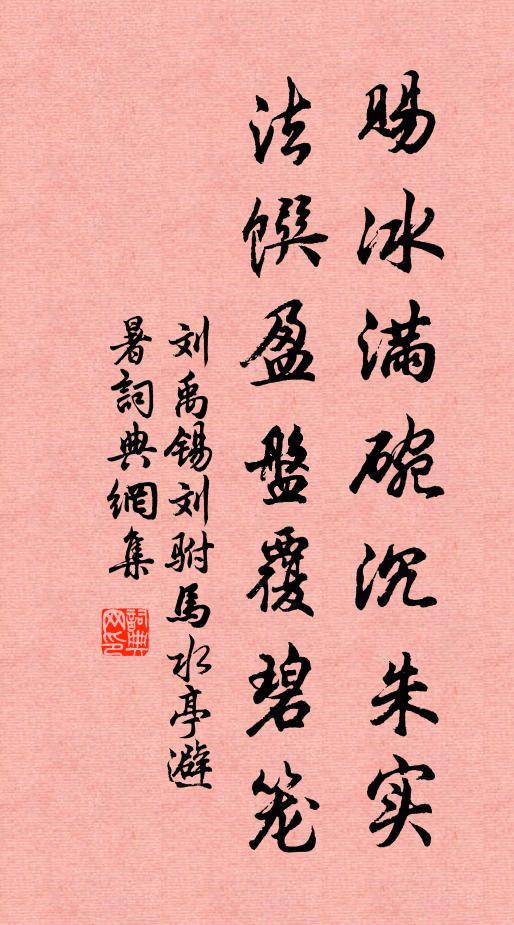 赐冰满碗沉朱实
法馔盈盘覆碧笼
刘禹锡刘驸馬水亭避
暑詞典網集
詞典
网印